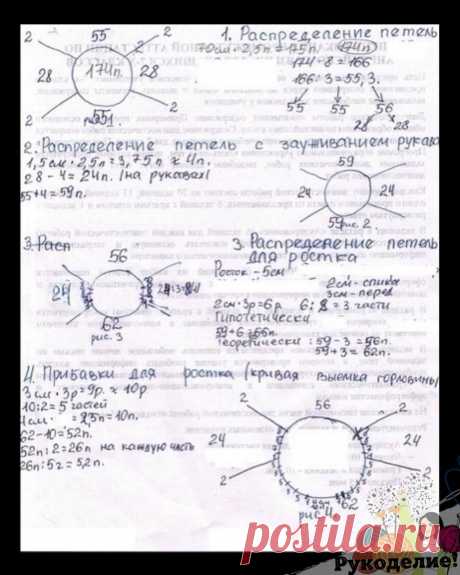 2 55 2
1. Распределение петель
70см · 2,5п = 175п. 174п
174 - 8 = 166
28 174п. 28
166 : 3 = 55,3.
55 55 56
2 55 2
28 28
2. Распределение петель с зауживанием рукава
1,5см · 2,5п = 3,75п ≈ 4п.
28 - 4 = 24п. /на рукавах/
55+4 = 59п.
59
24 24
59 рис. 2
3. Расп
3. Распределение петель
для ростка
56
Росток - 5см
24
2см - спинка
3см - перед
2см · 3р = 6р 6 : 2 = 3 части
Гипотетически
62
рис. 3
Теоретически : 59 - 3 = 56п.
59 + 3 = 62п.
4. Прибавки для ростка /кривая выемка горловины/
3см · 3р = 9р. ≈ 10р
10 : 2 = 5 частей
4см = 2,5п = 10п.
62 - 10 = 52п.
52п : 2 = 26п на каждую часть
26п : 5г = 5,2п.
2 56 2
24 24
2 2
62
рис 4
postila.ru
Рукоделие!